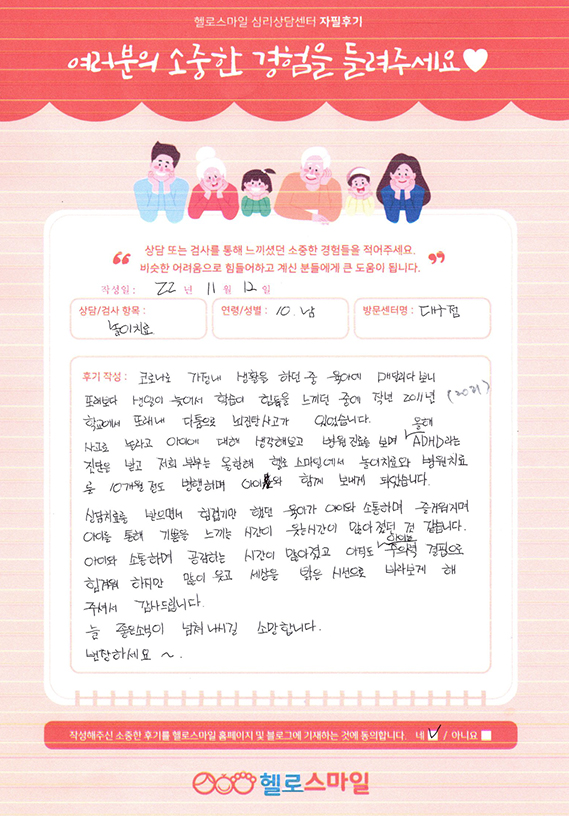 헬로스마일 심리상담센터 자필후기
여러분의 소중한 경험을 들려주세요♥
상담 또는 검사를 통해 느끼셨던 소중한 경험들을 적어주세요.
비슷한 어려움으로 힘들어하고 계신 분들에게 큰 도움이 됩니다.
작성일 : 22 년 11 월 12 일
상담/검사 항목 : 놀이치료
연령/성별 : 10. 남
방문센터명 : 대구점
후기 작성 : 코로나로 가정내 생활을 하던 중 육아에 매달리다 보니
또래보다 생일이 늦어서 학습이 힘듦을 느끼던 중에 작년 2011년 (2021)
학교에서 또래내 다툼으로 뇌진탕사고가 있었습니다.
사고로 놀라고 아이에 대해 생각해보고 병원진료를 보며 올해 ADHD라는
진단을 받고 저희 부부는 올한해 헬로 스마일에서 놀이치료와 병원치료
를 10개월 정도 병행하며 아이와 함께 보내게 되었습니다.
상담치료를 받으면서 힘겹기만 했던 육아가 아이와 소통하며 즐거워지며
아이를 통해 기쁨을 느끼는 시간이 웃는시간이 많아 졌던 것 같습니다.
아이와 소통하며 공감하는 시간이 많아졌고 아직도 주의력 결핍으로
힘겨워 하지만 많이 웃고 세상을 밝은 시선으로 바라보게 해
주셔서 감사드립니다.
늘 좋은소식이 넘쳐 나시길 소망합니다.
번창하세요 ~.
작성해주신 소중한 후기를 헬로스마일 홈페이지 및 블로그에 기재하는 것에 동의합니다. 네 ✓ / 아니요
헬로스마일